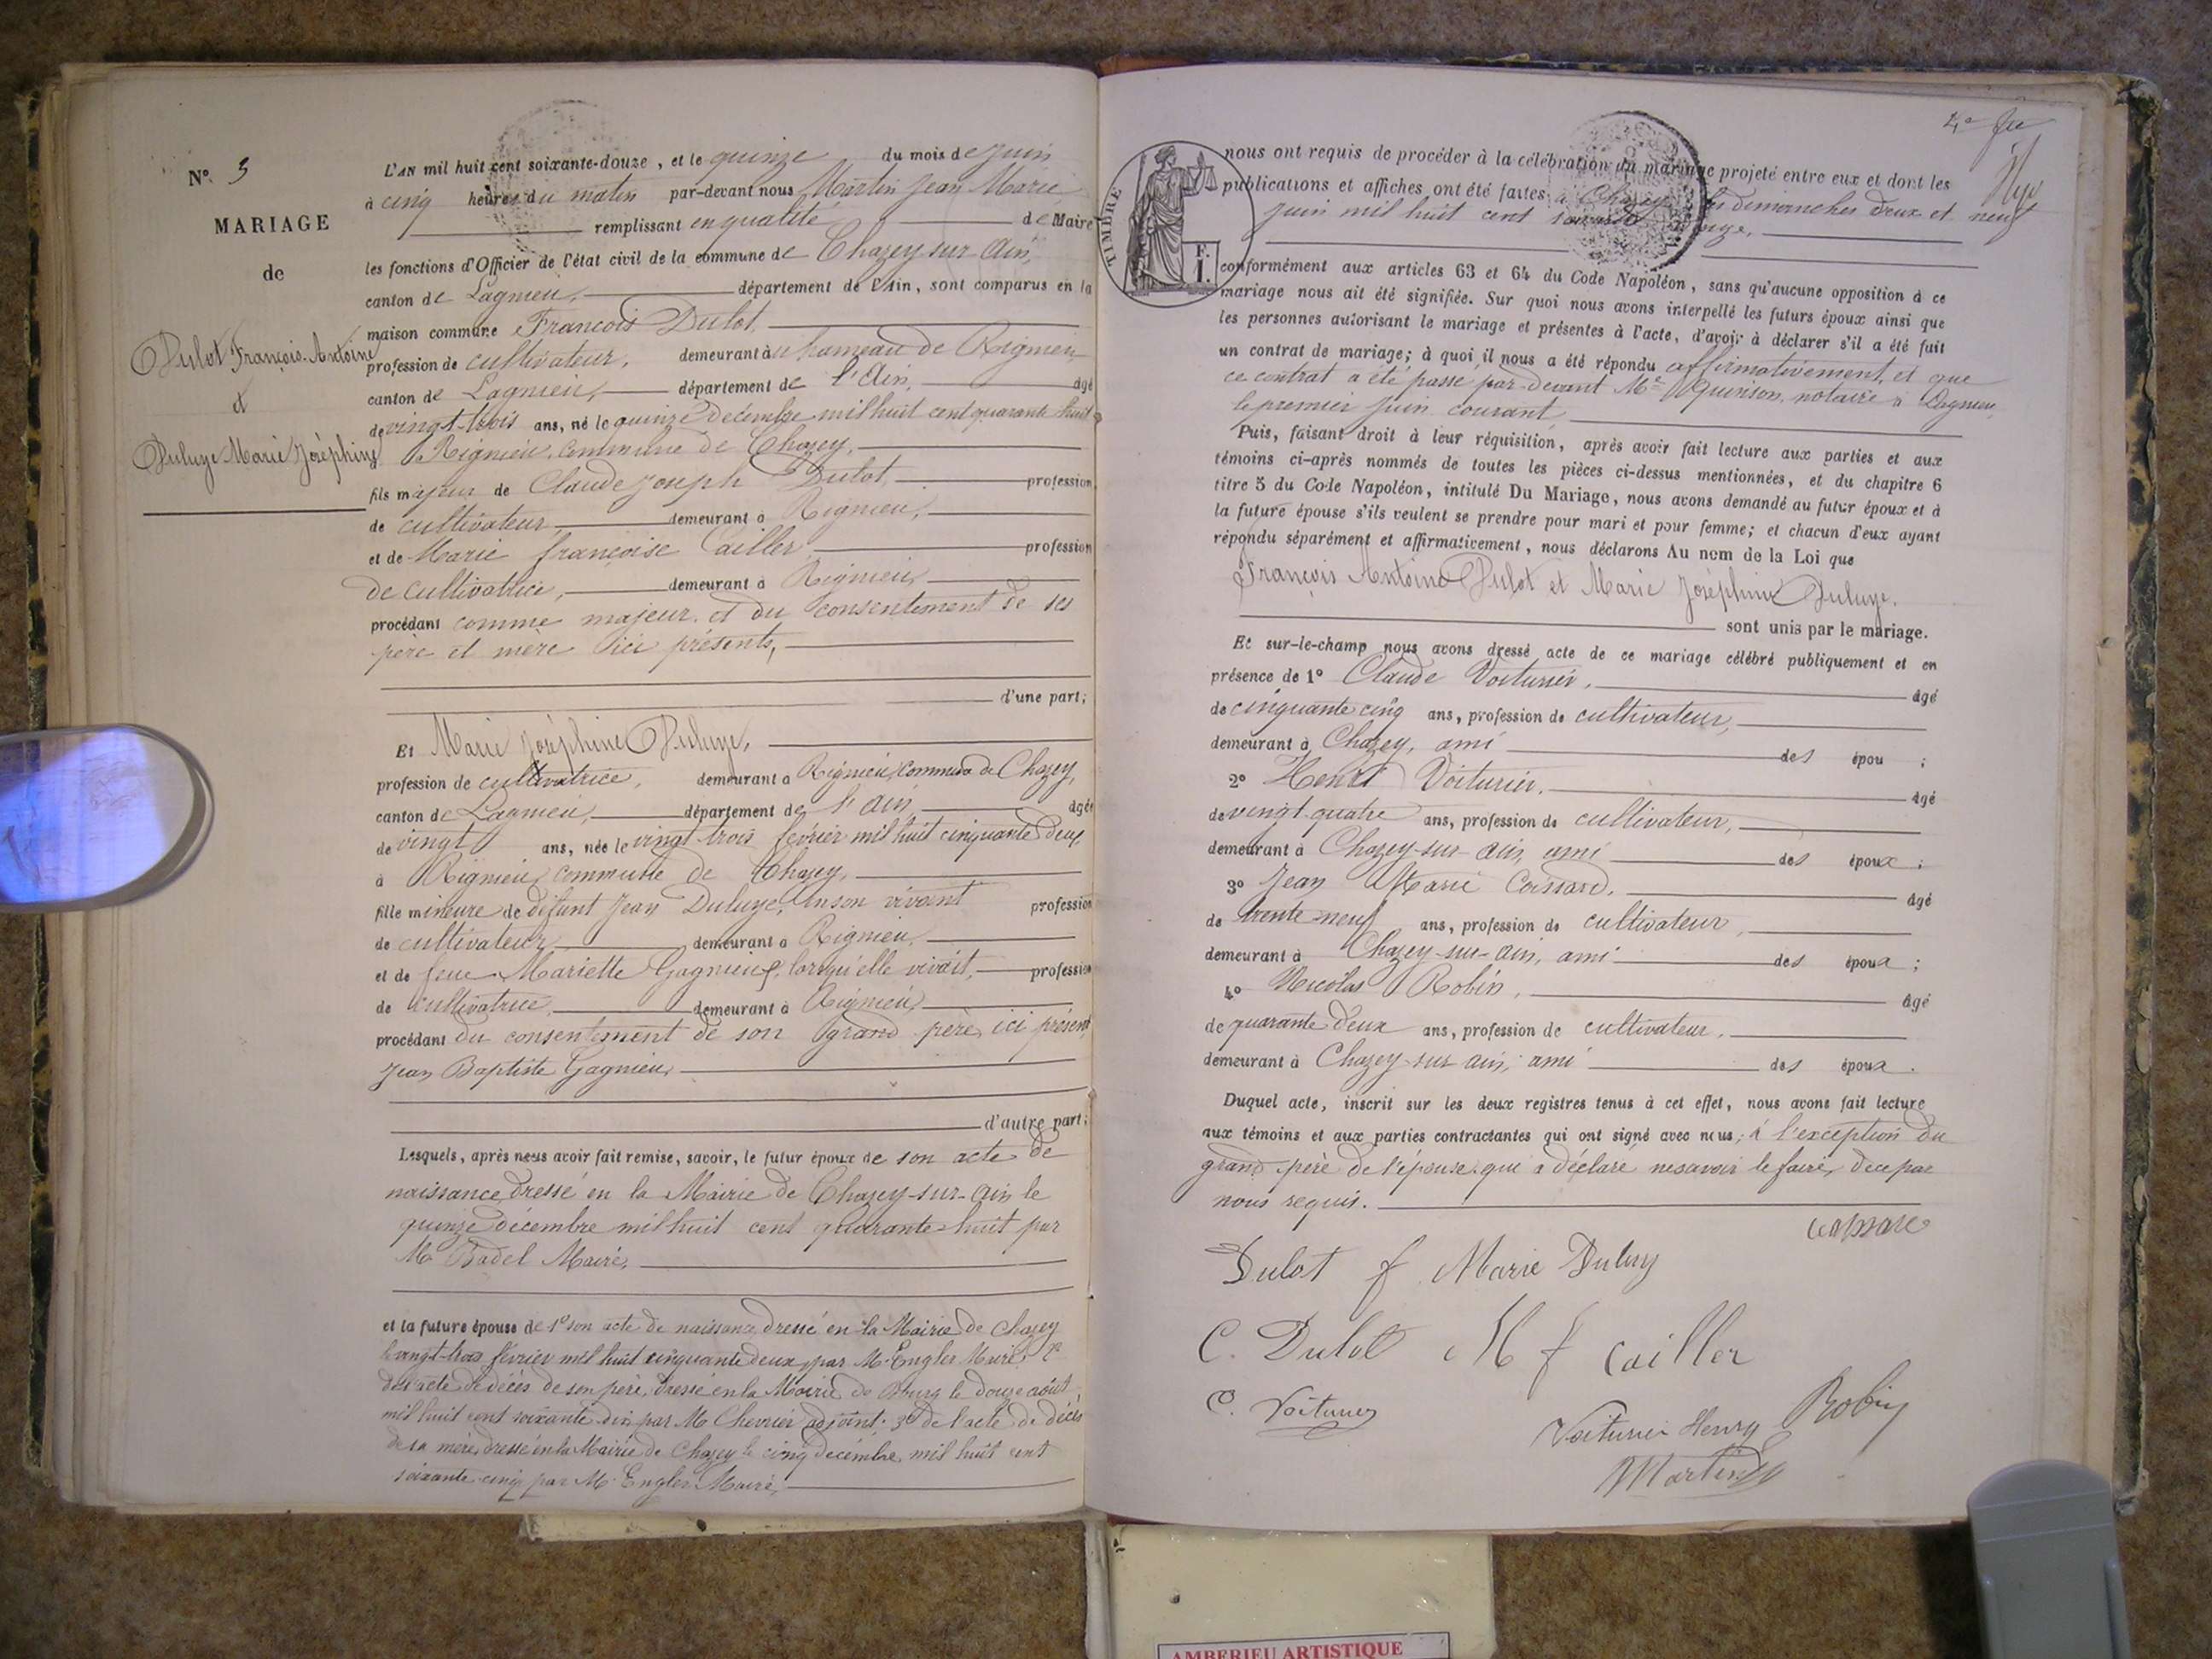 N° 3
MARIAGE
de
Dulot François-Antoine
et
Duluye Marie Joséphine
L'AN mil huit cent soixante-douze, et le quinze du mois de juin
à cinq heures du matin par-devant nous Martin Jean Marie
remplissant en qualité de Maire
les fonctions d'Officier de l'état civil de la commune de Chazey sur Ain,
canton de Lagnieu, département de l'Ain, sont comparus en la
maison commune François Dulot,
profession de cultivateur, demeurant au hameau de Rignieu
canton de Lagnieu, département de l'Ain, âgé
de vingt-trois ans, né le quinze décembre mil huit cent quarante huit
à Rignieu, commune de Chazey,
fils majeur de Claude Joseph Dulot, profession
de cultivateur, demeurant à Rignieu,
et de Marie françoise Cailler, profession
de cultivatrice, demeurant à Rignieu,
procédant comme majeur et du consentement de ses
père et mère ici présents,
d'une part;
Et Marie Joséphine Duluye,
profession de cultivatrice, demeurant à Rignieu, commune de Chazey,
canton de Lagnieu, département de l'Ain, âgée
de vingt ans, née le vingt-trois février mil huit cinquante deux,
à Rignieu, commune de Chazey,
fille mineure de défunt Jean Duluye, en son vivant profession
de cultivateur demeurant à Rignieu,
et de feue Mariette Gagnieux, lorsqu'elle vivait, profession
de cultivatrice, demeurant à Rignieu,
procédant du consentement de son grand père, ici présent
Jean Baptiste Gagnieu,
d'autre part;
Lesquels, après nous avoir fait remise, savoir, le futur époux de son acte de
naissance, dressé en la Mairie de Chazey-sur-Ain le
quinze décembre mil huit cent quarante-huit par
Mr Badel Maire,
et la future épouse de 1° son acte de naissance, dressé en la Mairie de Chazey
le vingt-trois février mil huit cinquante deux, par M. Engler Maire; 2°
de l'acte de décès de son père, dressé en la Mairie de Bourg le douze août
mil huit cent soixante-dix par Mr Chevrier adjoint; 3° de l'acte de décès
de sa mère, dressé en la Mairie de Chazey le cinq décembre mil huit cent
soixante-cinq par Mr Engler Maire,
TIMBRE
F.
1.
nous ont requis de procéder à la célébration du mariage projeté entre eux et dont les
publications et affiches ont été faites à Chazey les dimanches deux et neuf
juin mil huit cent
conformément aux articles 63 et 64 du Code Napoléon, sans qu'aucune opposition à ce
mariage nous ait été signifiée. Sur quoi nous avons interpellé les futurs époux ainsi que
les personnes autorisant le mariage et présentes à l'acte, d'avoir à déclarer s'il a été fait
un contrat de mariage; à quoi il nous a été répondu affirmativement, et que
ce contrat a été passé par-devant Me Quinson, notaire à Lagnieu
le premier juin courant,
Puis, faisant droit à leur réquisition, après avoir fait lecture aux parties et aux
témoins ci-après nommés de toutes les pièces ci-dessus mentionnées, et du chapitre 6
titre 5 du Code Napoléon, intitulé Du Mariage, nous avons demandé au futur époux et à
la future épouse s'ils veulent se prendre pour mari et pour femme; et chacun d'eux ayant
répondu séparément et affirmativement, nous déclarons Au nom de la Loi que
François Antoine Dulot et Marie Joséphine Duluye.
sont unis par le mariage.
Et sur-le-champ nous avons dressé acte de ce mariage célébré publiquement et en
présence de 1° Claude Voiturier, âgé
de cinquante cinq ans, profession de cultivateur,
demeurant à Chazey, ami des épou ;
2° Henri Voiturier, âgé
de vingt-quatre ans, profession de cultivateur,
demeurant à Chazey-sur-Ain, ami des époux;
3° Jean Marie Cassard, âgé
de trente-neuf ans, profession de cultivateur,
demeurant à Chazey-sur-Ain, ami des époux;
4° Nicolas Robin, âgé
de quarante deux ans, profession de cultivateur,
demeurant à Chazey-sur-Ain, ami des époux.
Duquel acte, inscrit sur les deux registres tenus à cet effet, nous avons fait lecture
aux témoins et aux parties contractantes qui ont signé avec nous, à l'exception du
grand père de l'épouse qui a déclaré ne savoir le faire, de ce par
nous requis.
Dulot f Marie Duluy
C. Dulot M f Cailler
C. Voiturier
Voiturier Henry Robin
Martin
AMBERIEU ARTISTIQUE